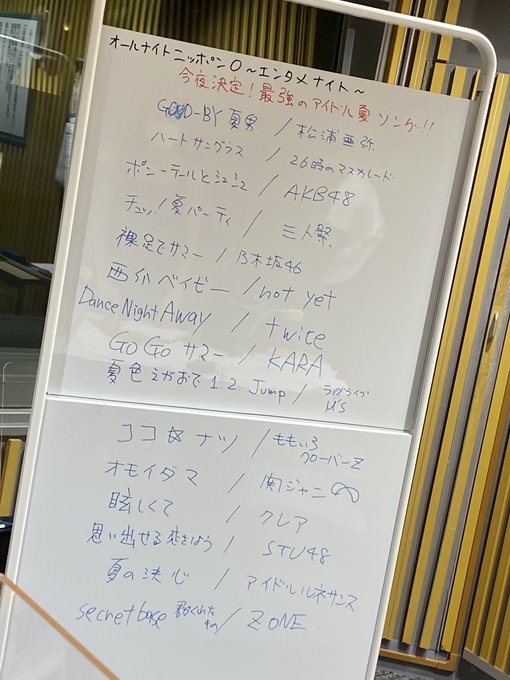 オールナイトニッポン0〜エンタメナイト〜
今夜決定！最強のアイドル夏ソング!!
GOOD-BY 夏男 / 松浦亜弥
ハートサングラス / 26時のマスカレード
ポニーテールとシュシュ / AKB48
チュッ！夏パーティ / 三人祭
裸足でサマー / 乃木坂46
西瓜ベイビー / not yet
Dance Night Away / twice
GO GO サマー / KARA
夏色えがおで 1.2 Jump / ラブライブ μ's
ココ☆ナツ / ももいろクローバーZ
オモイダマ / 関ジャニ∞
眩しくて / クレア
思い出せる恋をしよう / STU48
夏の決心 / アイドルルネサンス
secret base 君がくれたもの / ZONE